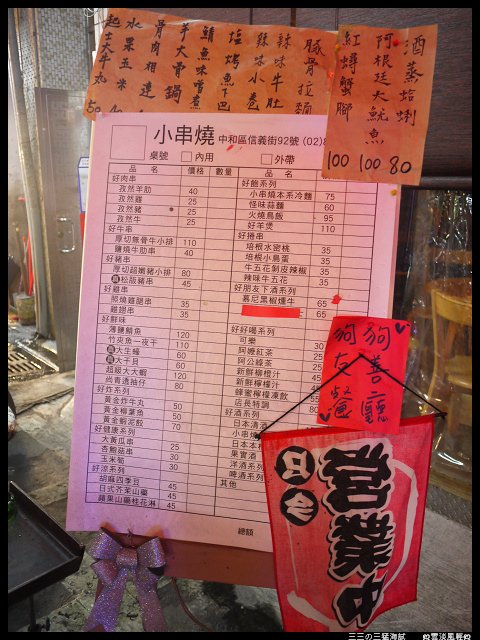 酒蒸蛤蜊 80
阿根廷大魷魚 100
紅蟳蟹腳 100
豚骨拉麵
辣味牛肚
辣味小卷
塩烤魚下巴
鯖魚味噌煮
羊大骨鍋
骨肉相連
水果玉米
起士大牛丸 50
小串燒 中和區信義街92號 (02)8
桌號 內用 外帶
品名 價格 數量 品名
好肉串
孜然羊肋 40
孜然雞 25
孜然豬 25
孜然牛 25
好牛串
厚切無骨牛小排 110
鹽燒牛肋串 40
好豬串
厚切超嫩豬小排 80
松阪豬串 45
好雞串
照燒雞腿串 35
雞翅串 35
好鮮味
薄鹽鯖魚 120
竹夾魚一夜干 110
大生蠔 60
大干貝 60
超級大大蝦 120
尚青透抽仔 80
好炸系列
黃金炸牛丸 50
黃金柳葉魚 50
黃金蝦泥餃 70
好健康系列
大黃瓜串 25
杏鮑菇串 30
玉米筍 30
好涼系列
胡麻四季豆 45
日式芥茉山藥 45
蘋果山藥桂花淋 45
好飽系列
小串燒本系冷麵 75
怪味蒜麵 60
火燒鳥飯 95
好羊煲 110
好捲串
培根水蜜桃 35
培根小鳥蛋 35
牛五花剝皮辣椒 35
辣味牛五花 35
好朋友下酒系列
慕尼黑椒燻牛 65
65
好好喝系列
可樂
阿嬤紅茶
阿公綠茶
新鮮柳橙汁
新鮮檸檬汁
蜂蜜檸檬凍飲
店長特調
好酒系列
日本清酒
小串燒
日本
果實酒
洋酒系列
啤酒系列
其他
總額
狗狗友善餐廳
今日
営業中
三三の三猛海賊
雲淡風輕